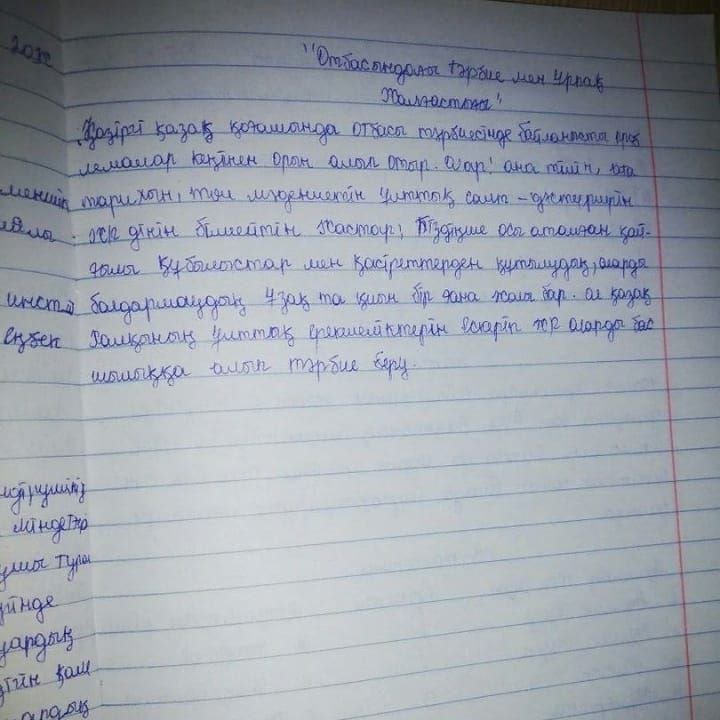 "Отбасындағы тәрбие мен ұрпақ
жалғастығы"
Қазіргі қазақ қоғамында отбасы тәрбиесінде байланысты
лемалар кеңінен орын алып отыр. Олар! ана тілін,
тарихын, төл мәдениетін ұлттық салт - дәстүрлерін
және дінін білмейтін жастар! Біздіңше осы аталған қай-
ғылы құбылыстар мен қасіреттерден құтылудың, оларды
болдырмаудың ұзақ та қиын бір ғана жолы бар. ол қазақ
халқының ұлттық ерекшеліктерін ескеріп және оларды бас
шылыққа алып тәрбие беру.
меншік
инсти
еңбек
міндеттер
ушы тұлға
йінде
ардың
ійн қал
ардың